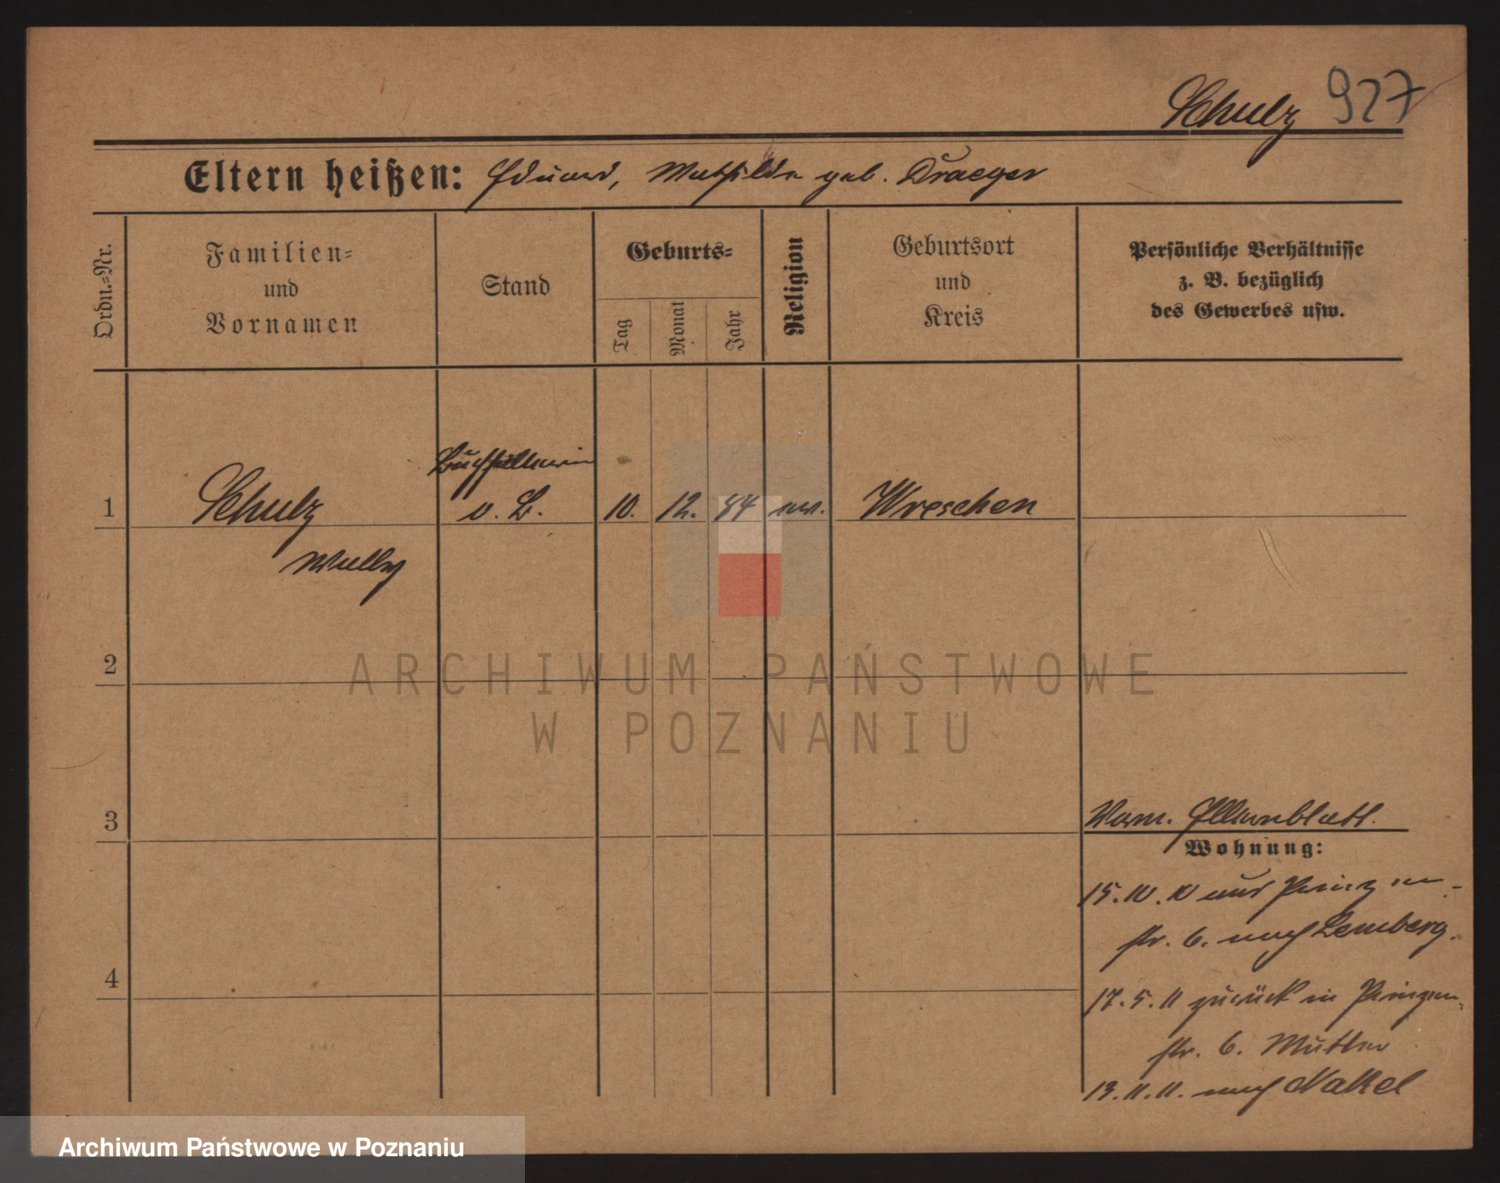 Schulz 927
Eltern heißen: Eduard, Mathilde geb. Draeger
Ordn.-Nr.
Familien-
und
Vornamen
Stand
Geburts-
Tag
Monat
Jahr
Religion
Geburtsort
und
Kreis
Persönliche Verhältnisse
z. B. bezüglich
des Gewerbes usw.
Buchhalterin
1 Schulz v. B. 10. 12. 84 ev. Wreschen
Wally
2
ARCHIWUM PAŃSTWOWE
W POZNANIU
3
Vorm. Elternblatt.
Wohnung:
15.10.10 aus Prinzen-
str. 6. nach Lemberg.
4
17.5.11 zurück in Prinzen-
str. 6. Mutter
13.11.11. nach Nakel
Archiwum Państwowe w Poznaniu